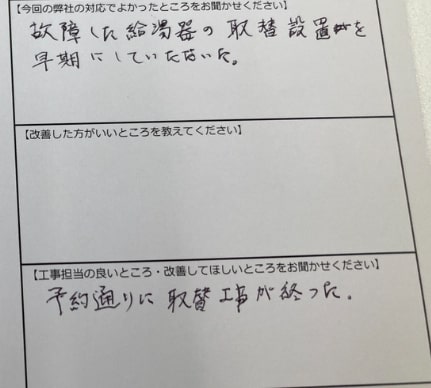 【今回の弊社の対応でよかったところをお聞かせください】
故障した給湯器の取替設置を
早期にしていただいた。
【改善した方がいいところを教えてください】
【工事担当の良いところ・改善してほしいところをお聞かせください】
予約通りに取替工事が終った。